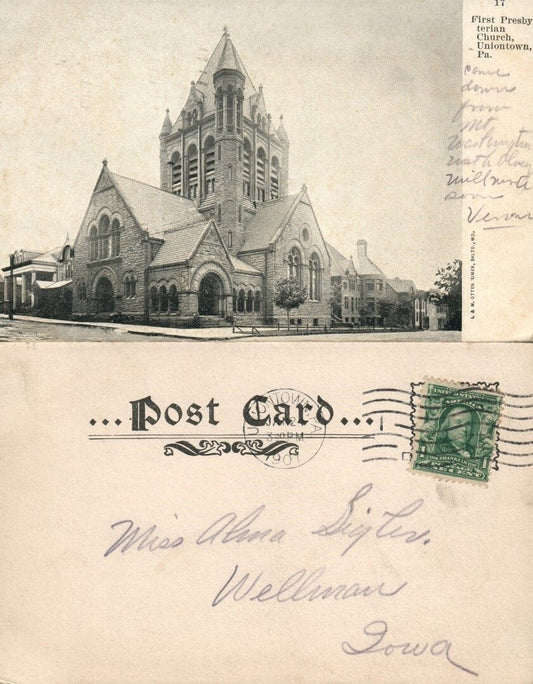 17
First Presby-
terian
Church,
Uniontown,
Pa.
come
down
from
Mt.
Washington
with
will write
soon
Vernon
L & M. OTTENHEIMER, BALTO., MD.
...Post Card...
UNIONTOWN, PA
3 30 PM
Miss Alma Sigler.
Wellman
Iowa